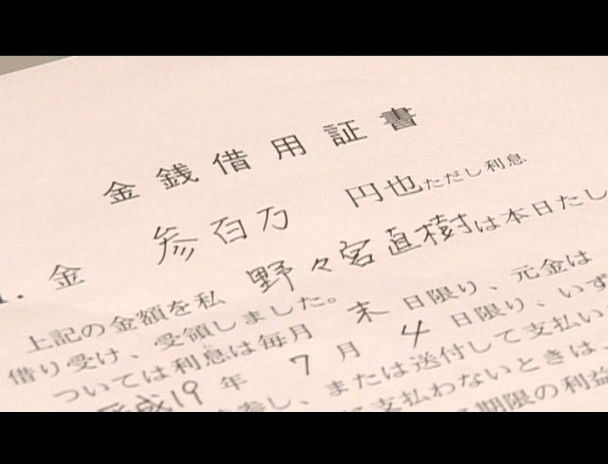 金銭借用証書
1. 金 参百万 円也ただし利息
上記の金額を私 野々宮直樹は本日たし
借り受け、受領しました。
ついては利息は毎月 末 日限り、元金は
平成19年 7月 4日限り、いず
参し、または送付して支払い
支払わないときは、
期限の利益